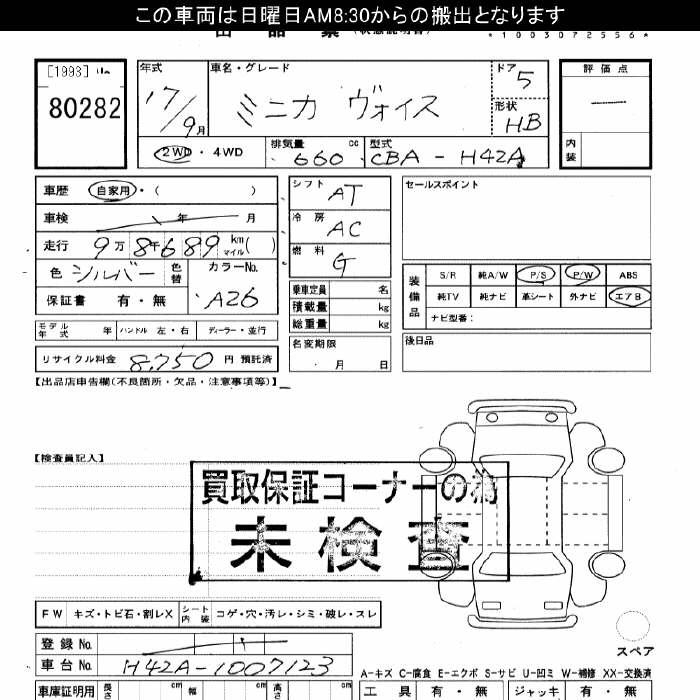 この車両は日曜日AM8:30からの搬出となります
*1003072556*
[1993]
80282
年式 17/9月
車名・グレード ミニカ ヴォイス
ドア 5
形状 HB
評価点 —
内装
2WD・4WD
排気量 660 cc
型式 CBA-H42A
車歴 自家用・( )
車検 年 月
走行 9万8千689 km マイル( )
色 シルバー 色替
カラーNo. A26
保証書 有・無
シフト AT
冷房 AC
燃料 G
乗車定員 名
積載量 kg
総重量 kg
名変期限 ・月 日
セールスポイント
装備品
S/R 純A/W P/S P/W ABS
純TV 純ナビ 革シート 外ナビ エアB
ナビ型番:
後日品
モデル年式 年 ハンドル 左・右 ディーラー・並行
リサイクル料金 8,750 円 預託済
【出品店申告欄(不良箇所・欠品・注意事項等)】
【検査員記入】
買取保証コーナーの為
未検査
FW キズ・トビ石・割レX シート内装 コゲ・穴・汚レ・シミ・破レ・スレ
スペア
登録No.
車台No. H42A-1007123
A-キズ C-腐食 E-エクボ S-サビ U-凹ミ W-補修 XX-交換済
車庫証明用 長さ cm 幅 cm 高さ cm
工具 有・無 ジャッキ 有・無